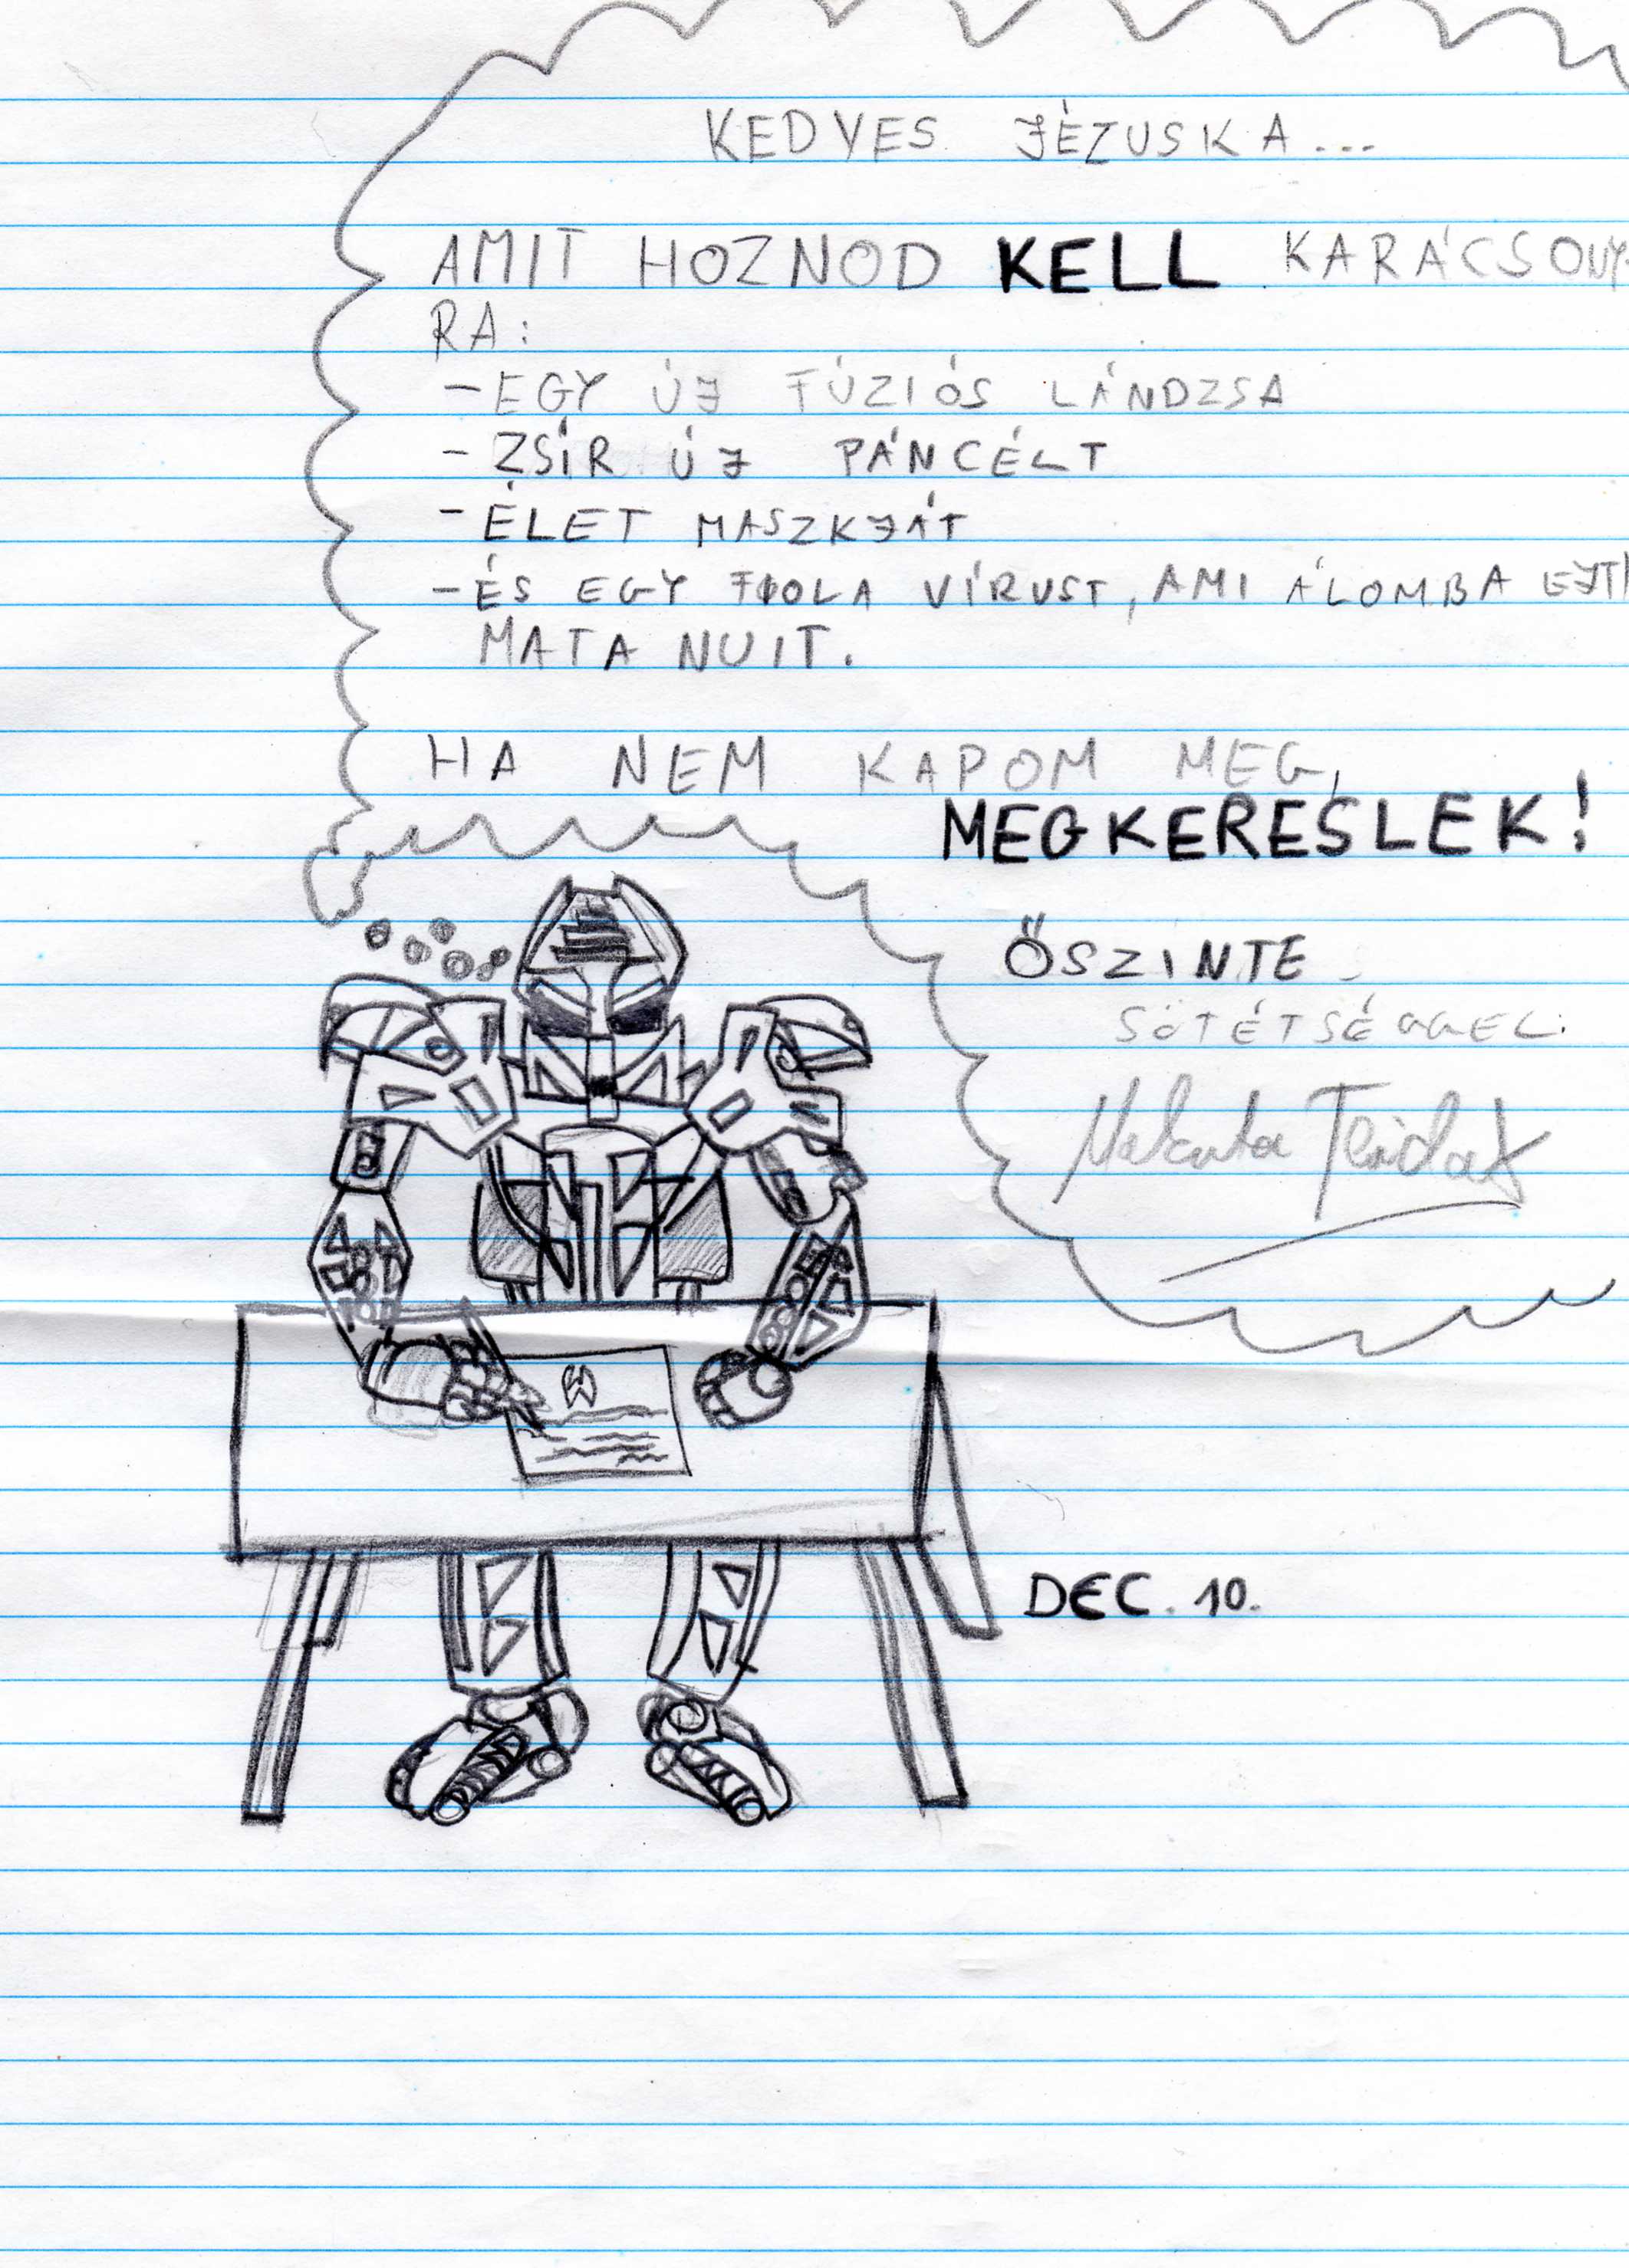 KEDVES JÉZUSKA...
AMIT HOZNOD KELL KARÁCSONY-
RA:
- EGY ÚJ FÚZIÓS LÁNDZSA
- ZSÍR ÚJ PÁNCÉLT
- ÉLET MASZKJÁT
- ÉS EGY FIOLA VÍRUST, AMI ÁLOMBA EJTI
MATA NUIT.
HA NEM KAPOM MEG,
MEGKERESLEK!
ŐSZINTE
SÖTÉTSÉGGEL:
Makuta Teridax
DEC. 10.